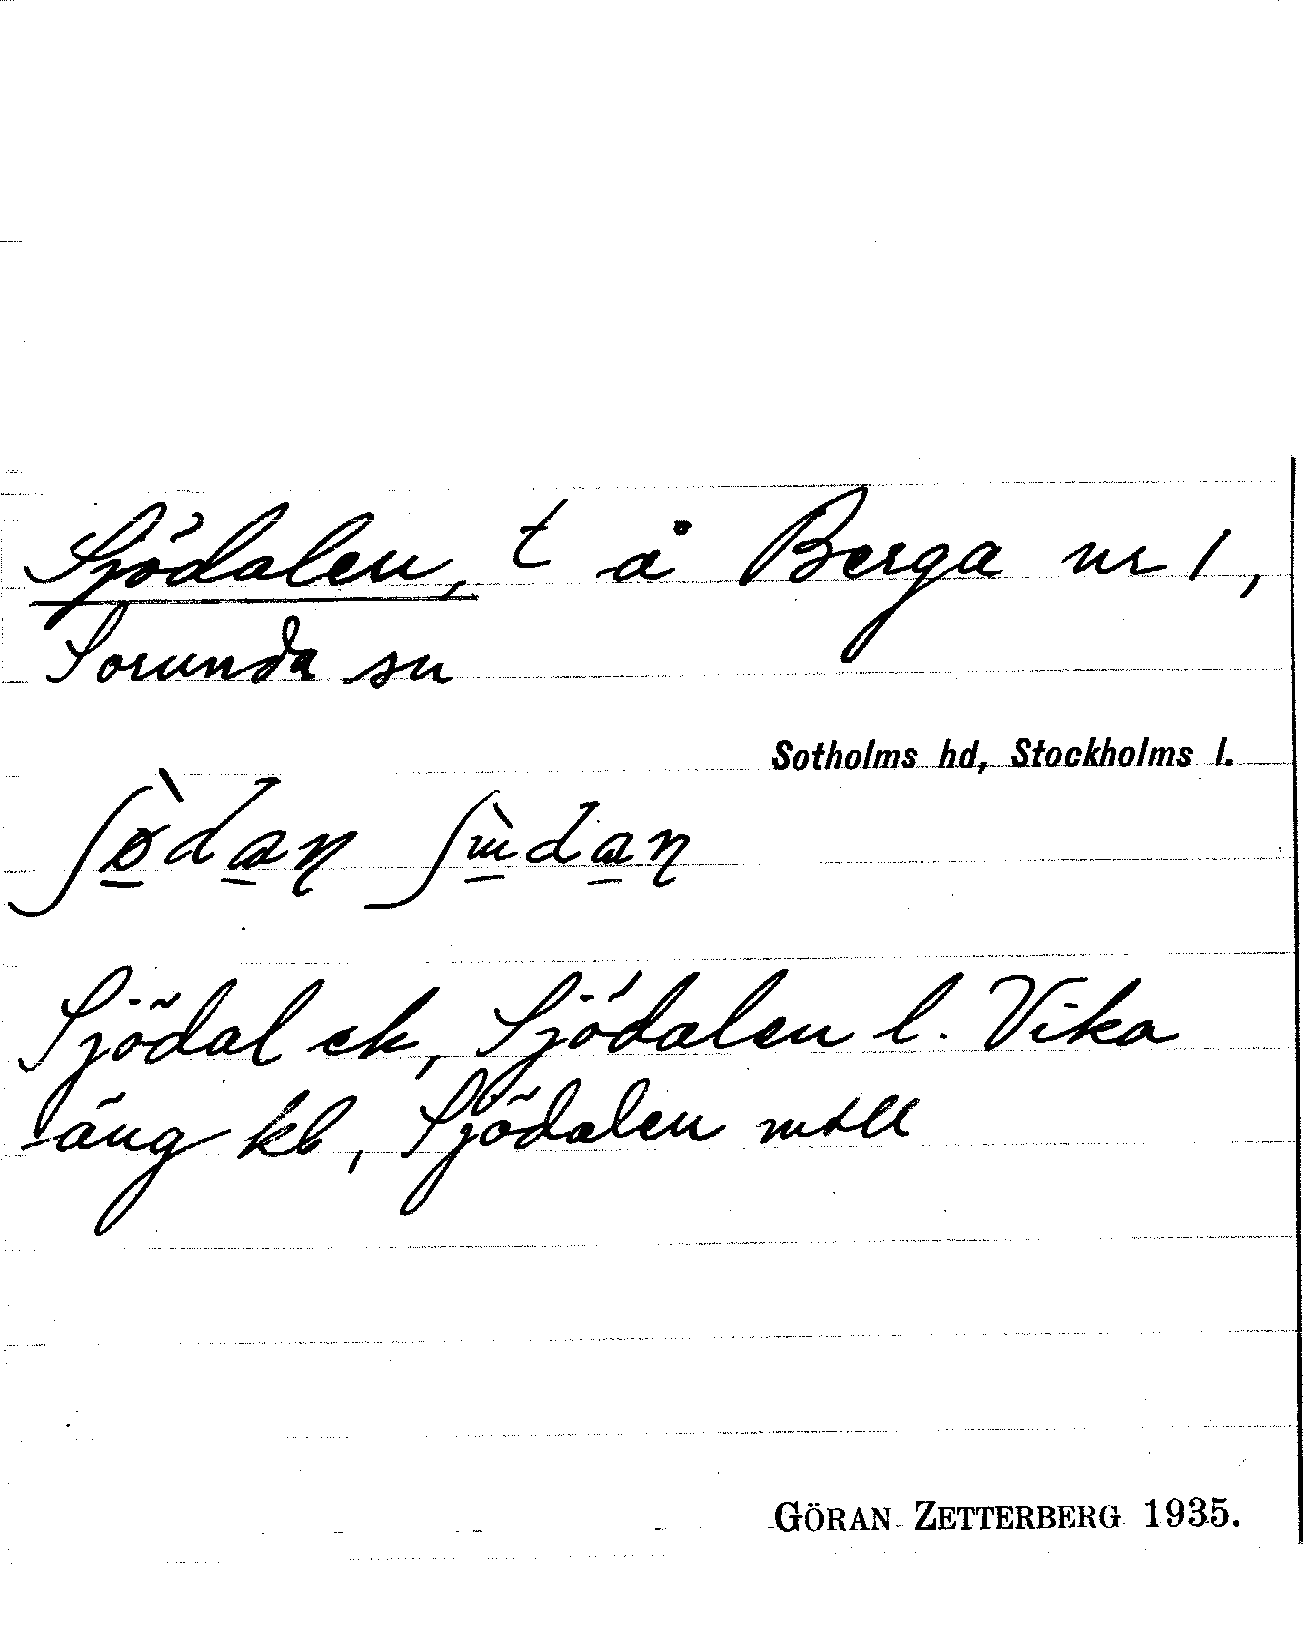 Sjödalen, t å Berga nr 1,
Sorunda sn
Sotholms hd, Stockholms l.
Sjödal ek, Sjödalen l. Vika
äng kb, Sjödalen mtll
GÖRAN ZETTERBERG 1935.